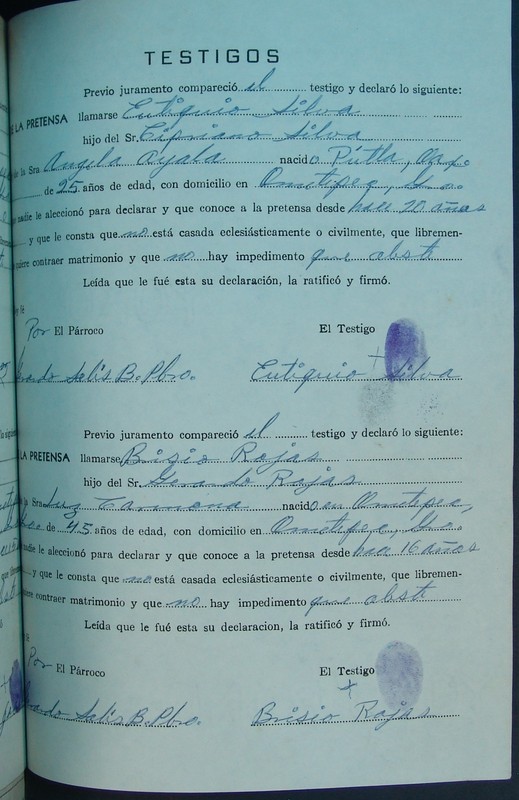 TESTIGOS
Previo juramento compareció el testigo y declaró lo siguiente:
DE LA PRETENSA llamarse Eutiquio Silva
hijo del Sr. Cipriano Silva
de la Sra Angela Ayala nacido Putla, Oax.
de 25 años de edad, con domicilio en Ometepec, Gro.
nadie le aleccionó para declarar y que conoce a la pretensa desde hace 20 años
y que le consta que no está casada eclesiásticamente o civilmente, que libremen-
quiere contraer matrimonio y que no hay impedimento que obste
Leída que le fué esta su declaración, la ratificó y firmó.
fé
Por El Párroco El Testigo
Solis B. Pbro. Eutiquio Silva
Previo juramento compareció el testigo y declaró lo siguiente:
LA PRETENSA llamarse Brisio Rojas
hijo del Sr. Rojas
la Sra. Luz Carmona nacido en Ometepec,
de 45 años de edad, con domicilio en Ometepec, Gro.
nadie le aleccionó para declarar y que conoce a la pretensa desde hace 16 años
y que le consta que no está casada eclesiásticamente o civilmente, que libremen-
quiere contraer matrimonio y que no hay impedimento que obste
Leída que le fué esta su declaracion, la ratificó y firmó.
fé
Por El Párroco El Testigo
Solis B. Pbro. Brisio Rojas